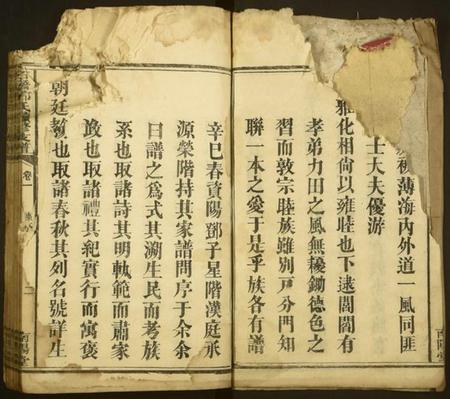 薄海內外道一風同匪
士大夫優游
雅化相尚以雍睦也下逮閭閻有
孝弟力田之風無耰鋤德色之
習而敦宗睦族雖別戸分門知
聯一本之愛于是乎族各有譜
南陽堂
辛巳春資陽鄧子星階漢庭承
源榮階持其家譜問序于余余
曰譜之爲式其溯生民而考族
系也取諸詩其明軌範而肅家
政也取諸禮其紀實行而寓褒
朝廷也取諸春秋其列名號詳生
卷一
南陽堂